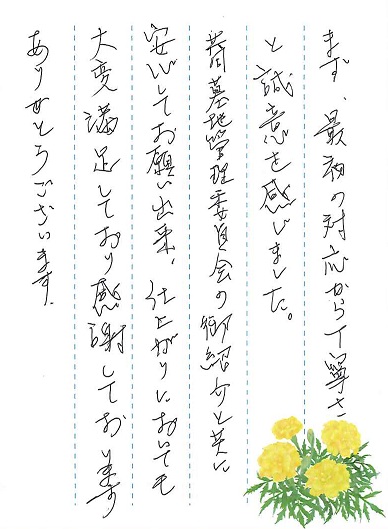 まず、最初の対応から丁寧さ
と誠意を感じました。
墓地管理委員会の御紹介と共に
安心してお願い出来、仕上がりにおいても
大変満足しており感謝しております
ありがとうございます。